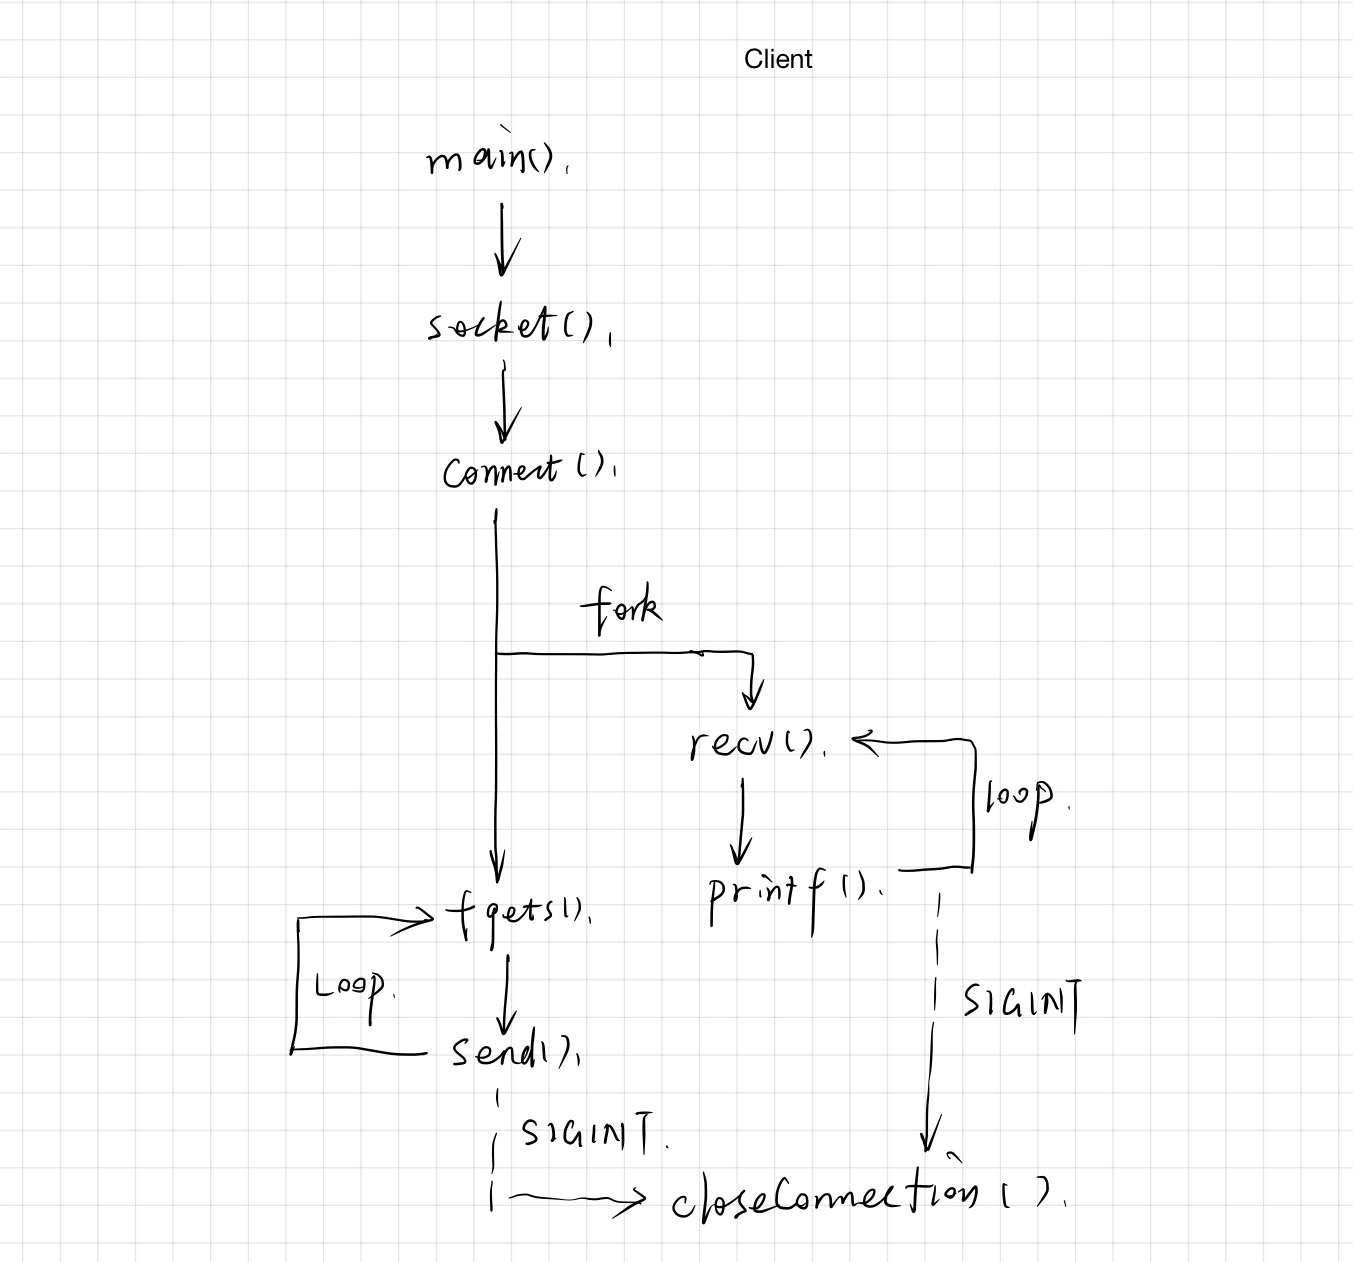 Client
main().
socket().
connect().
fork
recv().
loop.
printf().
fgets().
Loop.
SIGINT
send().
SIGINT.
closeConnection().